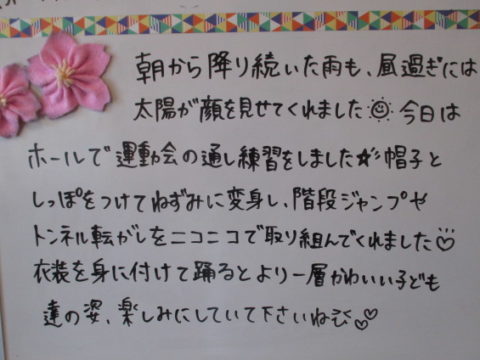 朝から降り続いた雨も、昼過ぎには
太陽が顔を見せてくれました 今日は
ホールで運動会の通し練習をしました☆彡帽子と
しっぽをつけてねずみに変身し、階段ジャンプや
トンネル転がしをニコニコで取り組んでくれました♡
衣装を身に付けて踊るとより一層かわいい子ども
達の姿、楽しみにしていて下さいね♡♡